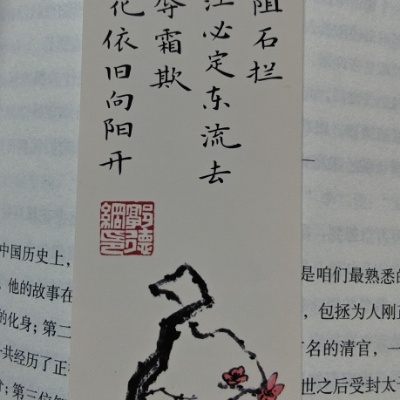 阻石拦
江必定东流去
辱霜欺
花依旧向阳开
郭德
綱印
中国历史上，
他的故事在
的化身；第二
一共经历了正
；第三位
是咱们最熟悉的
，包拯为人刚
名的清官，一
世之后受封太